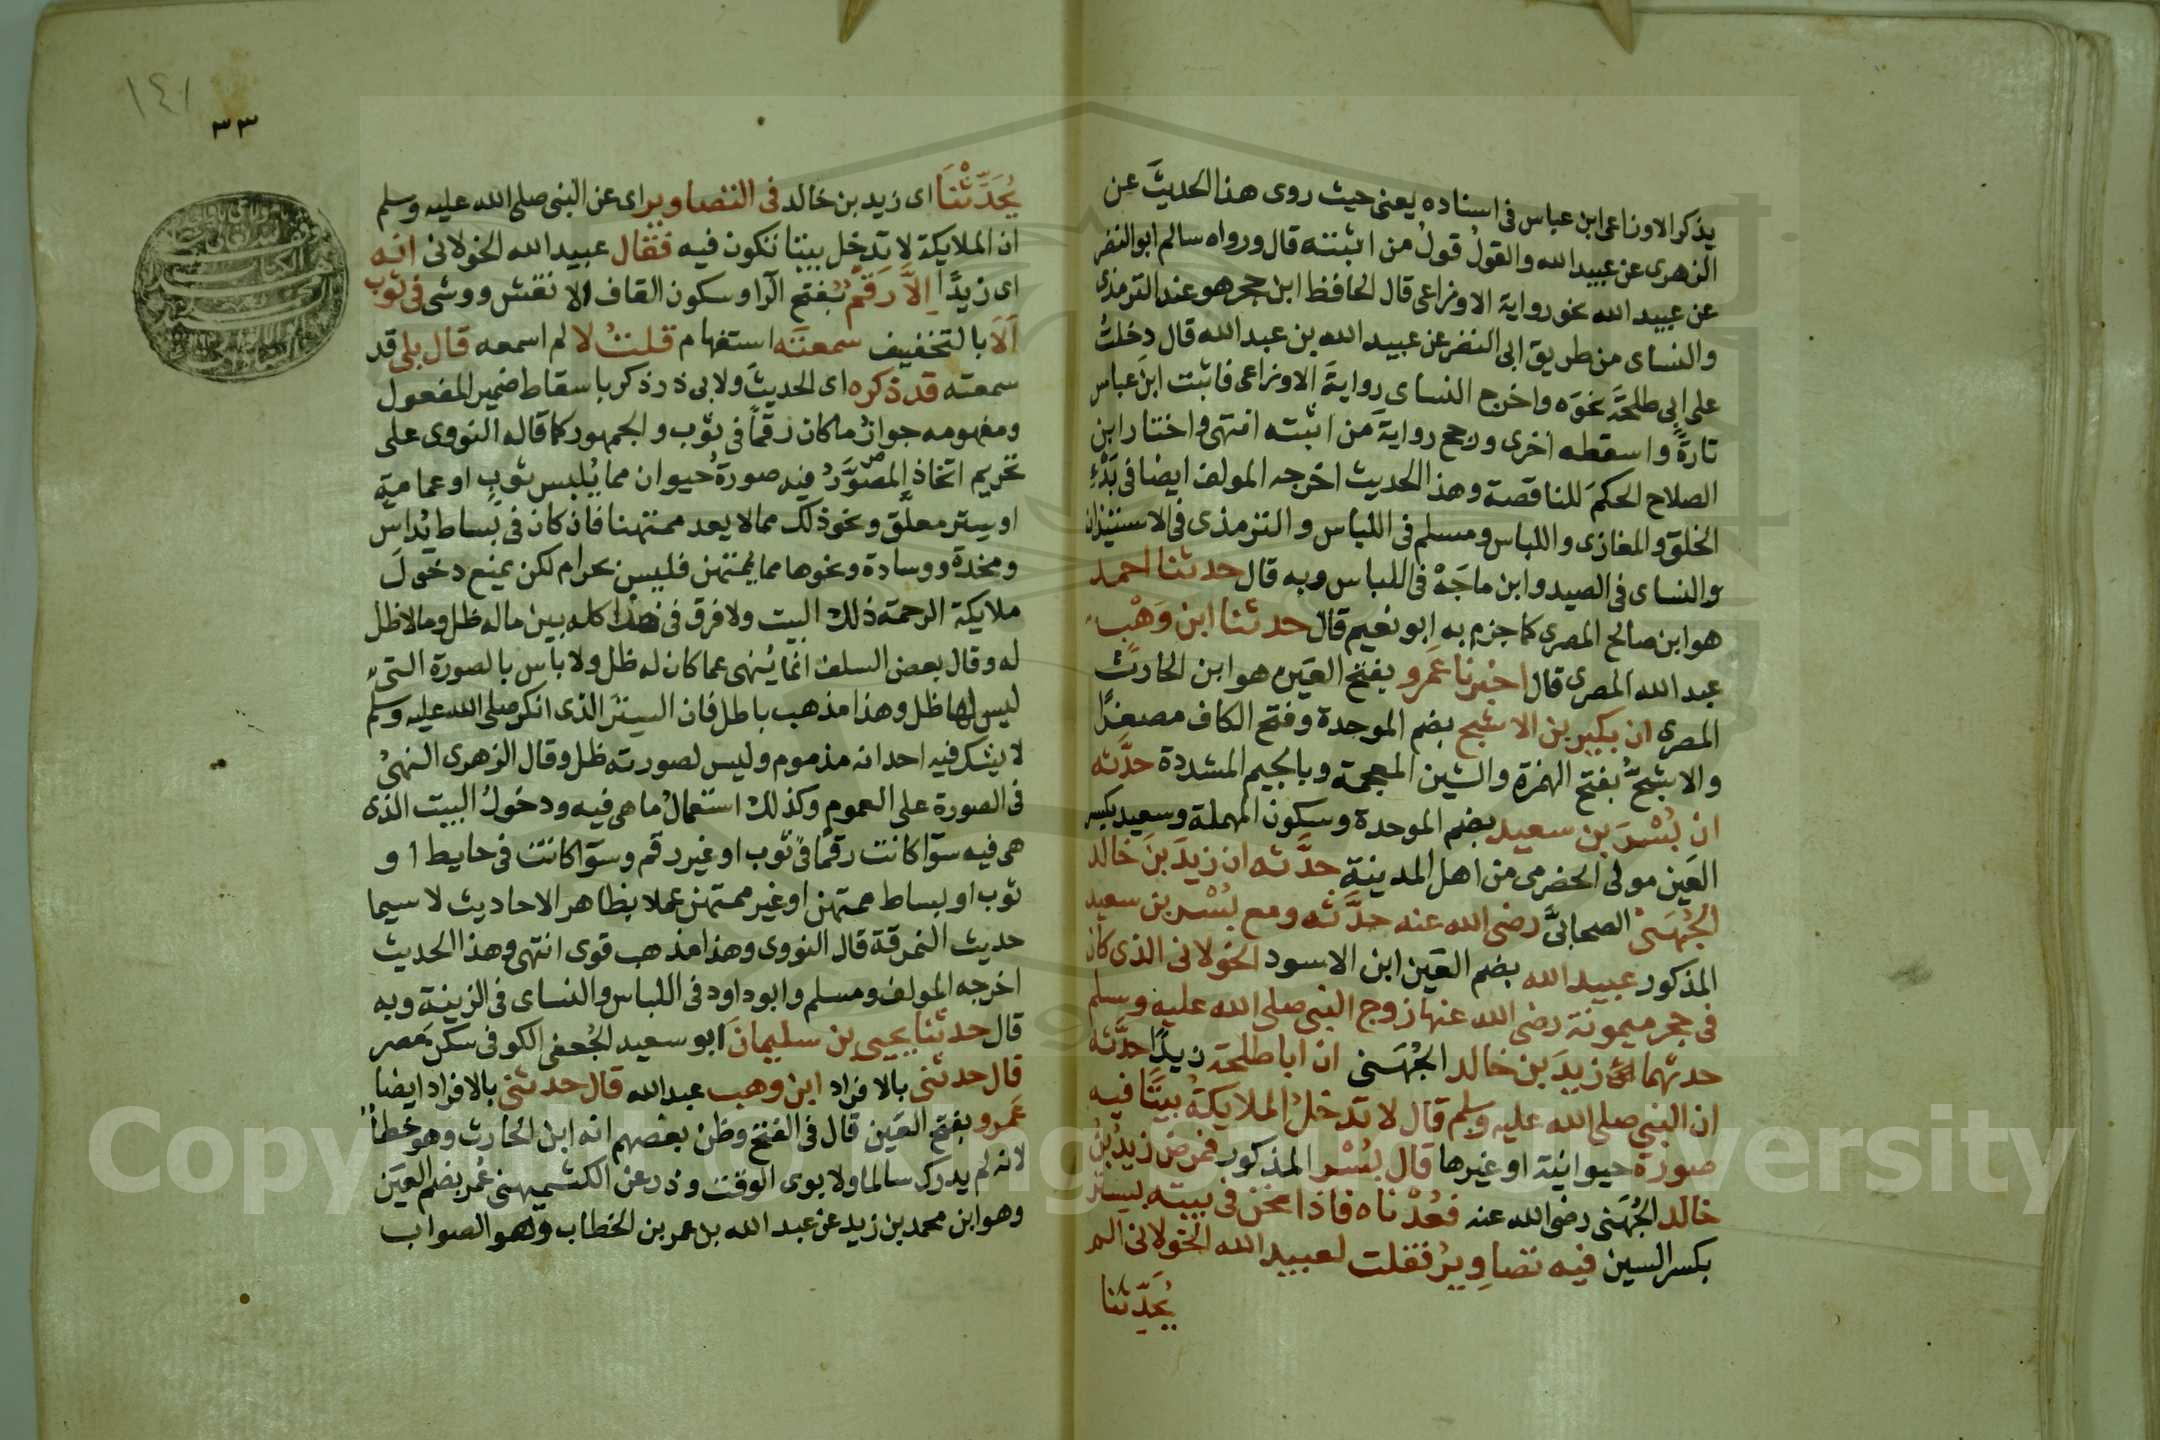 يذكر الاوزاعى ابن عباس فى اسناده يعنى حيث روى هذا الحديث عن
الزهرى عن عبيد الله والقول قول من اثبته قال ورواه سالم ابو النضر
عن عبيد الله نحو رواية الاوزاعى قال الحافظ ابن حجر هو عند الترمذى
والنساى من طريق ابى النضر عن عبيد الله بن عبد الله قال دخلتُ
على ابى طلحةَ نحوَه واخرج النساى روايةَ الاوزاعى فاثبت ابنَ عباس
تارةً واسقطه اخرى ورجح روايةَ من اثبته انتهى واختار ابن
الصلاح الحكمَ للناقصة وهذا الحديث اخرجه المولف ايضا فى بَدْءِ
الخلق والمغازى واللباس ومسلم فى اللباس والترمذى فى الاستيذان
والنساى فى الصيد وابن ماجَهْ فى اللباس وبه قال حدثنا احمد
هو ابن صالح المصرى كما جزم به ابو نعيم قال حدثنا ابن وَهْب
عبد الله المصرى قال اخبرنا عَمرو بفتح العَين هو ابن الحارث
المصرى ان بكير بن الاشج بضم الموحدة وفتح الكاف مصغرًا
والاشجُّ بفتح الهمزة والشين المعجمة وبالجيم المشددة حدَّثه
ان بُسْرَ بن سعيد بضم الموحدة وسكون المهملة وسعيد بكسر
العَين مولى الحضرمى من اهل المدينة حدَّثه ان زيدَ بنَ خالد
الجُهَنىَّ الصحابىَّ رضى الله عنه حدَّثه ومع بُسْر بن سعيد
المذكور عبيد الله بضم العَين ابن الاسود الخولانى الذى كان
فى حجر ميمونة رضى الله عنها زوج النبى صلى الله عليه وسلم
حدثهما زيدَ بن خالد الجُهَنى ان ابا طلحة زيدًا حدَّثه
ان النبى صلى الله عليه وسلم قال لا تدخلُ الملايكةُ بيتًا فيه
صورة حيوانية او غيرها قال بُسْر المذكور فمرض زيدُ بنُ
خالد الجُهَنى رضى الله عنه فعُدْناه فاذا نحن فى بيته بستر
بكسر السين فيه تصاوِيرُ فقلت لعبيد الله الخولانى الم
يُحَدِّثنا
١٤١
٣٣
يُحَدِّثْنَا اى زيد بن خالد فى التصاوير اى عن النبى صلى الله عليه وسلم
ان الملايكة لا تدخل بيتا تكون فيه فقال عبيد الله الخولانى انه
اى زيدًا إلَّا رَقْمٌ بفتح الرا وسكون القاف الا نقش ووشى فى ثوب
اَلَا بالتخفيف سمعتَه استفهام قلتُ لا لم اسمعه قال بلى قد
سمعته قد ذكره اى الحديثَ ولابى ذر ذكر باسقاط ضمير المفعول
ومفهومه جوازُ ما كان رقمًا فى ثوب والجمهور كما قاله النووى على
تحريم اتخاذ المصوَّرُ فيه صورةُ حيوان مما يُلبس ثوبٍ او عمامةٍ
او ستر معلَّق ونحو ذلك مما لا يعد ممتهنا فان كان فى بساط يُداس
ومخدة ووسادة ونحوها مما يمتهن فليس بحرام لكن يمنع دخولَ
ملايكة الرحمة ذلك البيت ولا فرق فى هذا كله بين ماله ظل وما لا ظل
له وقال بعض السلف انما يُنهى عما كان له ظل ولا باس بالصورة التى
ليس لها ظل وهذا مذهب باطل فان الستر الذى انكر صلى الله عليه وسلم
لا يشك فيه احد انه مذموم وليس لصورته ظل وقال الزهرى النهىُ
فى الصورة على العموم وكذلك استعمالُ ما هى فيه ودخولُ البيت الذى
هى فيه سوا كانت رقمًا فى ثوب او غير رقم وسوا كانت فى حايط او
ثوب او بساط ممتهن او غير ممتهن عملا بظاهر الاحاديث لا سيما
حديث النمرقة قال النووى وهذا مذهب قوى انتهى وهذا الحديث
اخرجه المولف ومسلم وابو داود فى اللباس والنساى فى الزينة وبه
قال حدثنا يحيى بن سليمانَ ابو سعيد الجُعفى الكوفى سكن مصر
قال حدثنى بالافراد ابن وهب عبد الله قال حدثنى بالافراد ايضا
عَمرو بفتح العَين قال فى الفتح وظن بعضهم انه ابن الحارث وهو خطأ
لانه لم يدرك سالما ولابوى الوقت وذر عن الكشميهنى عُمر بضم العَين
وهو ابن محمد بن زيد عن عبد الله بن عمر بن الخطاب وهو الصواب
Copyright © King Saud University